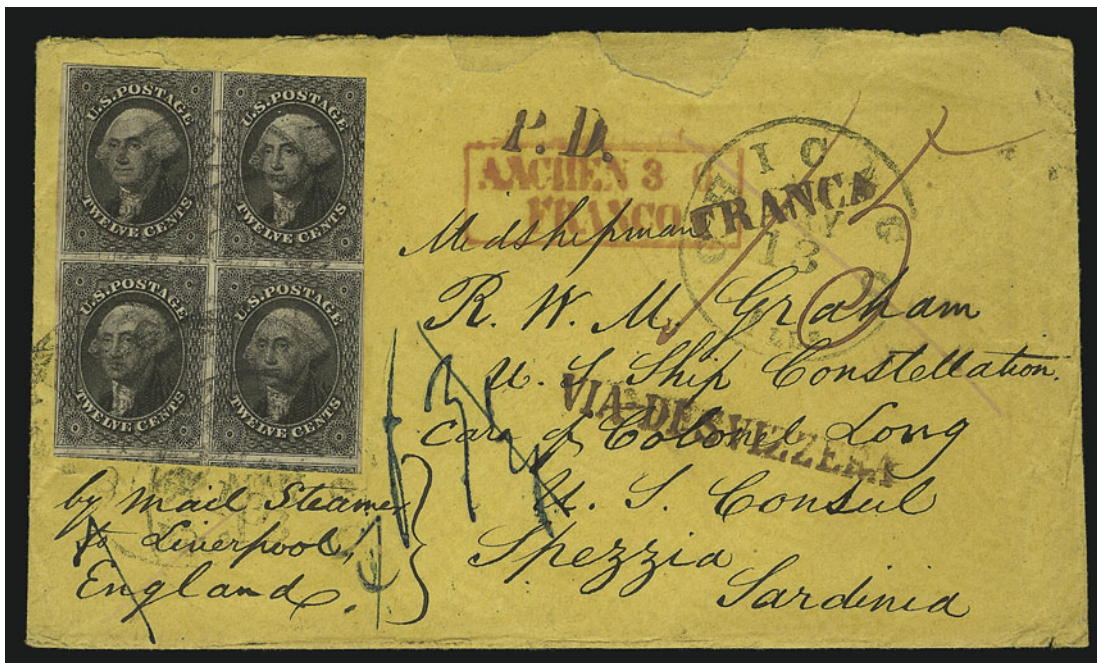 U.S. POSTAGE
TWELVE CENTS
U.S. POSTAGE
TWELVE CENTS
U.S. POSTAGE
TWELVE CENTS
U.S. POSTAGE
TWELVE CENTS
P.D.
AACHEN 3
FRANCO
FRANCA
CHICAGO
13
Midshipman
R. W. M. Graham
U. S Ship Constellation.
VIA-DI-SVIZZERA
Care of Colonel Long
U. S. Consul
Spezzia
Sardinia
by Mail Steamer
to Liverpool,
England.